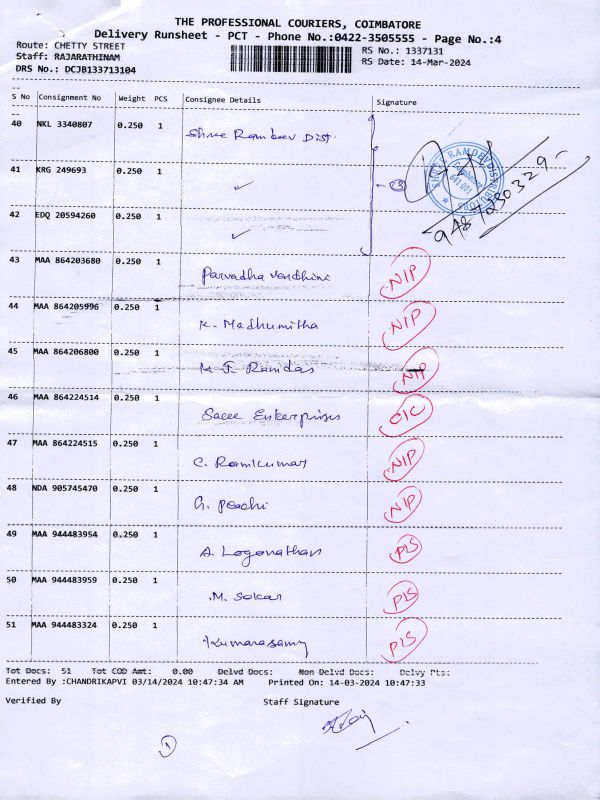 THE PROFESSIONAL COURIERS, COIMBATORE
Delivery Runsheet - PCT - Phone No.:0422-3505555 - Page No.:4
Route: CHETTY STREET RS No.: 1337131
Staff: RAJARATHINAM RS Date: 14-Mar-2024
DRS No.: DCJB133713104
S No Consignment No Weight PCS Consignee Details Signature
40 NKL 3340807 0.250 1 Shree Ramdev Dist.
SHREE RAMDEV DISTRIBUTORS
Coimbatore
641 001
41 KRG 249693 0.250 1 ✓
42 EDQ 20594260 0.250 1 ✓
43 MAA 864203680 0.250 1 Parvadha Vardhini NIP
44 MAA 864205996 0.250 1 K. Madhumitha NIP
45 MAA 864206800 0.250 1 Ramdas NIP
46 MAA 864224514 0.250 1 Enterprises CIC
47 MAA 864224515 0.250 1 C. Ramkumar NIP
48 NDA 905745470 0.250 1 G. Peachi NIP
49 MAA 944483954 0.250 1 A. Loganathan PLS
50 MAA 944483959 0.250 1 M. Sekar PLS
51 MAA 944483324 0.250 1 Kumarasamy PLS
Tot Docs: 51 Tot COD Amt: 0.00 Delvd Docs: Non Delvd Docs: Delvy Pts:
Entered By :CHANDRIKAPVI 03/14/2024 10:47:34 AM Printed On: 14-03-2024 10:47:33
Verified By Staff Signature